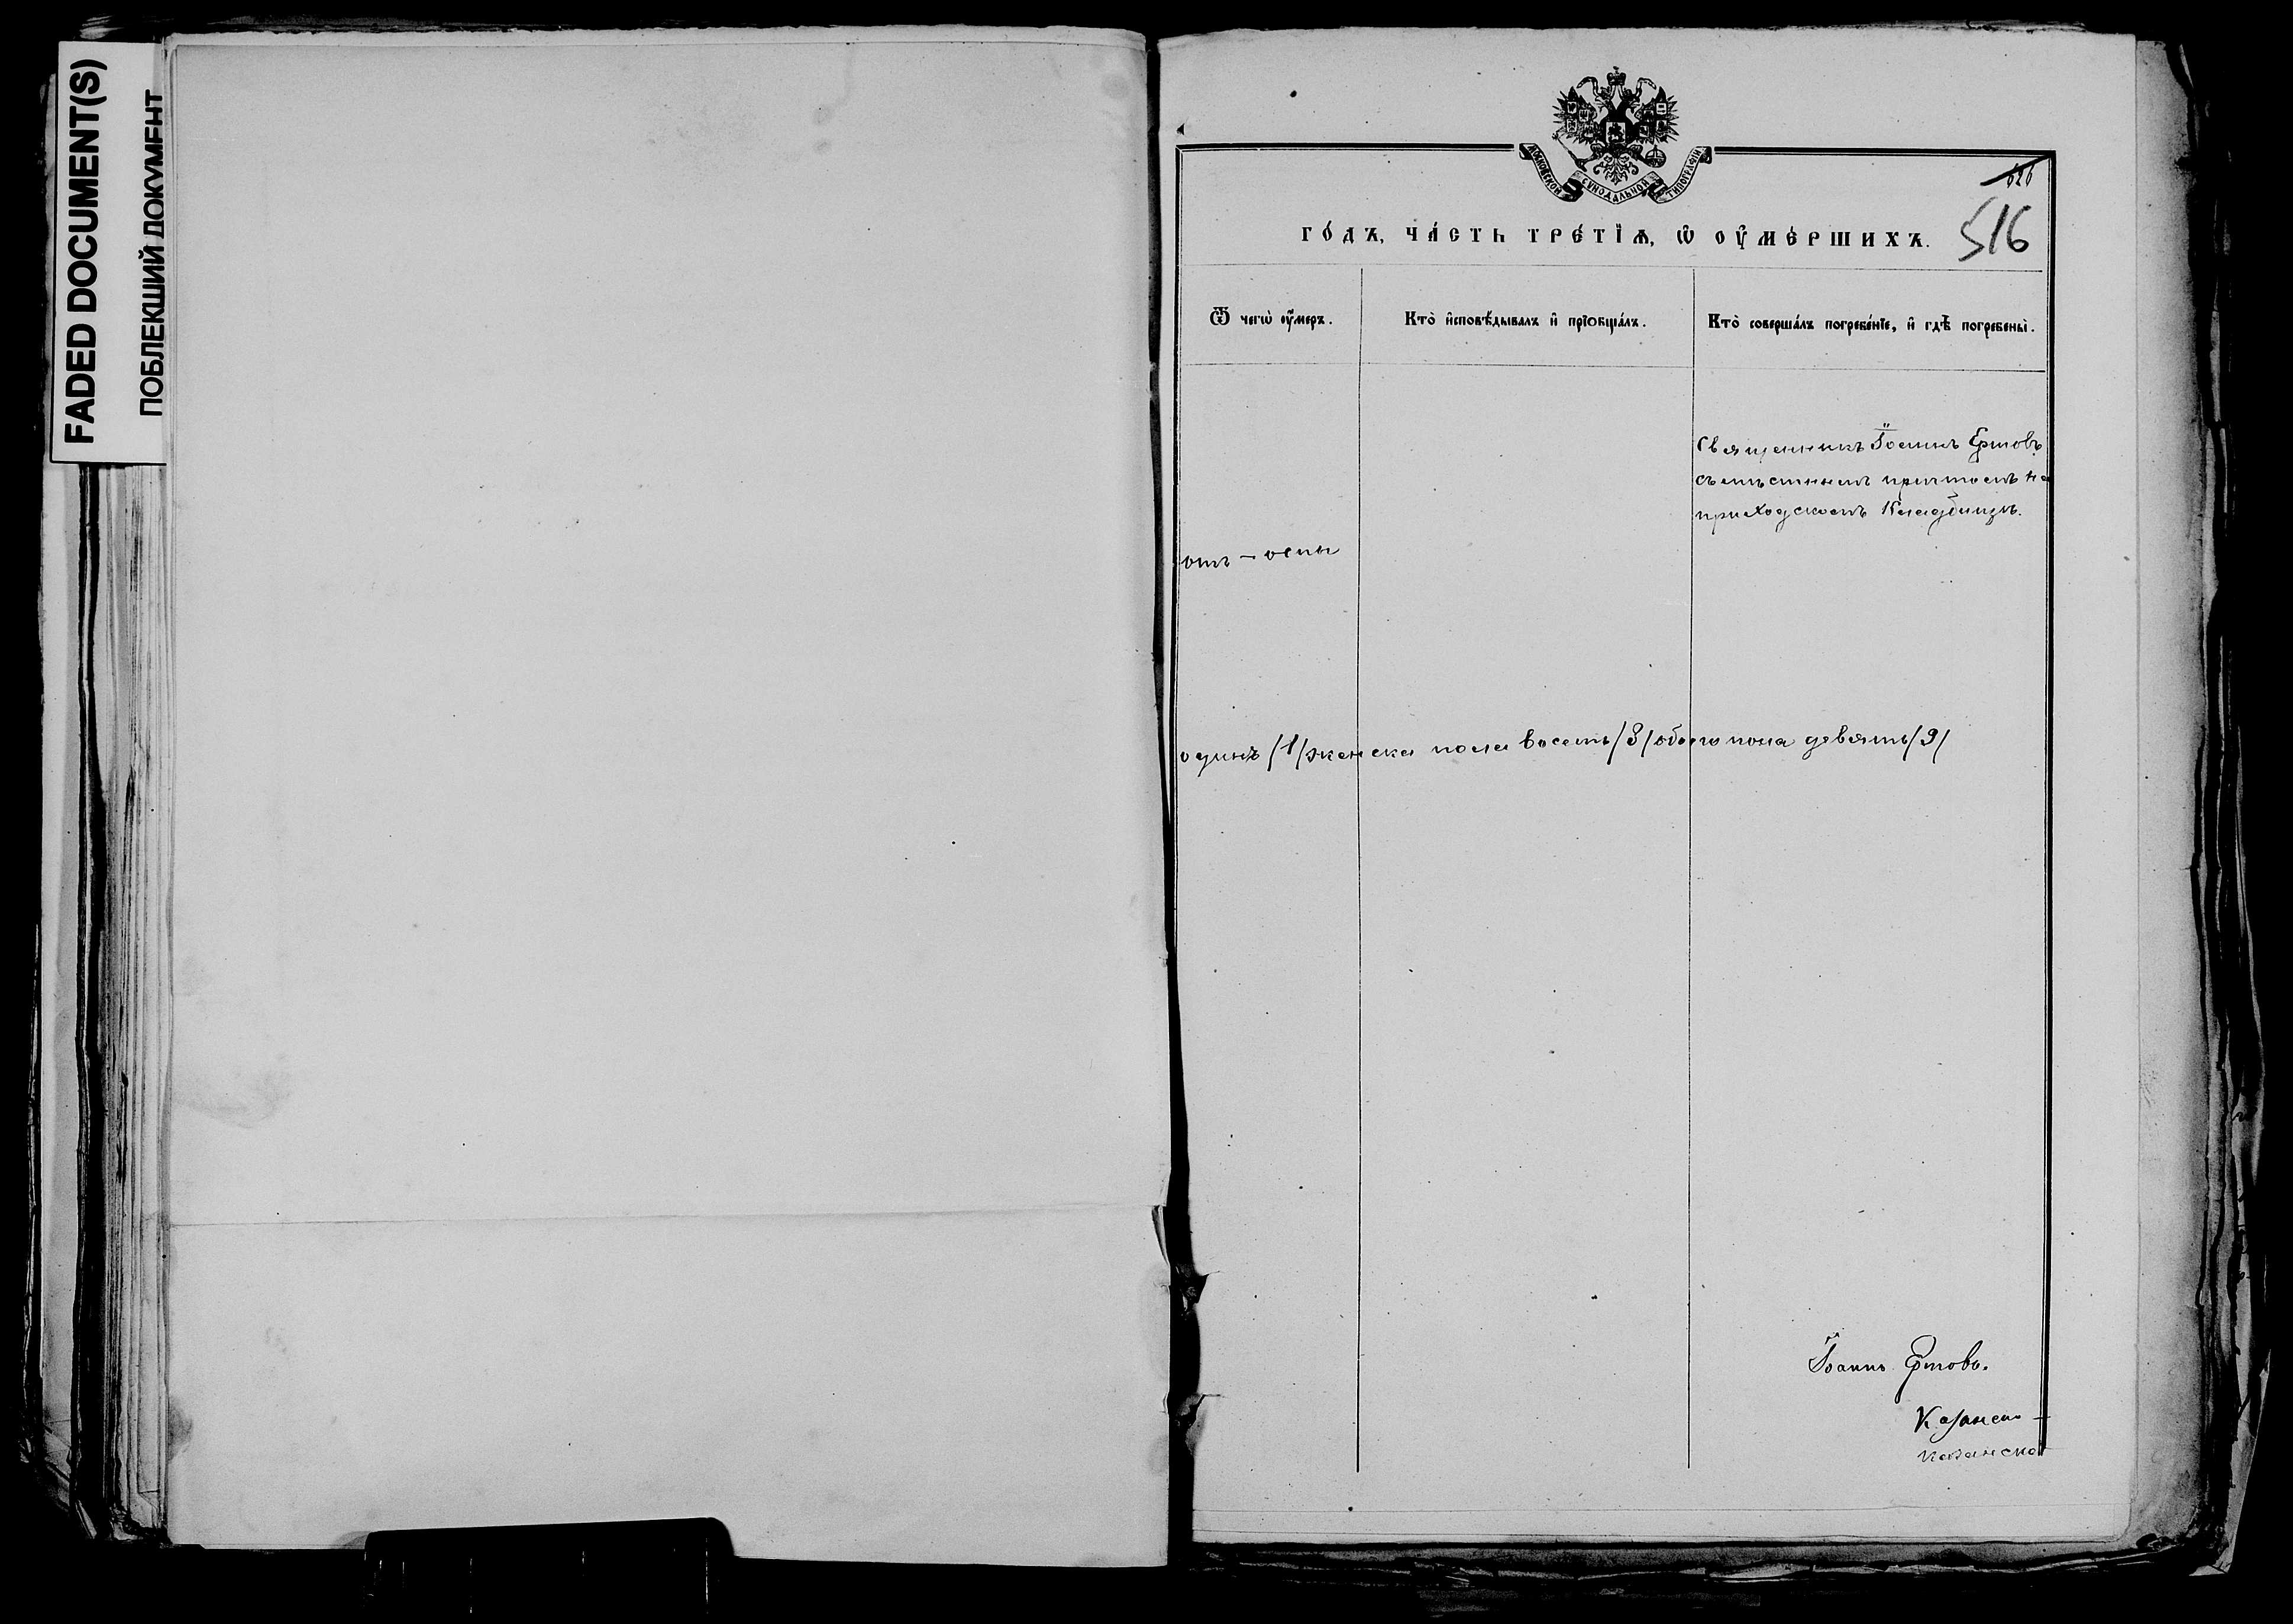 FADED DOCUMENT(S)
ПОБЛЕКШИЙ ДОКУМЕНТ
МОСКОВСКОЙ СѴНОДАЛЬНОЙ ТИПОГРАФІИ
626
516
го́дъ, ча́сть тре́тїѧ, ѡ҆ оу҆ме́ршихъ.
Ѿ чегѡ̀ оу҆́меръ.
Кто̀ и҆сповѣ́дывалъ и҆ прїобща́лъ.
Кто̀ соверша́лъ погребе́нїе, и҆ гдѣ̀ погребены̀.
Священникъ Іоаннъ
съ мѣстнымъ причтомъ на
приходскомъ кладбищѣ.
отъ – оспы
одинъ /1/ женска пола восемь /8/ обоего пола девять /9/
Іоаннъ